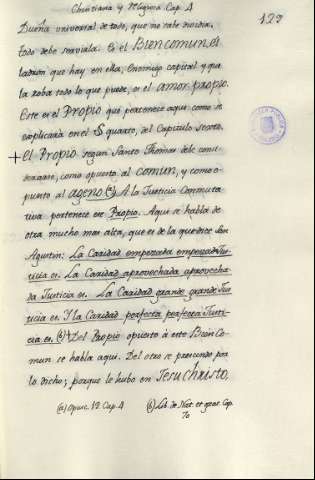 Christiana y Religiosa Cap. 4
123
Dueña universal de todo, que no cabe medida.
todo debe servirla. Es el Bien comun. El
ladron que hay en ella, Enemigo capital y que
la roba todo lo que puede, es el amor propio.
Este es el Propio que pertenece aqui como se
explicarà en el § quarto, del Capitulo sexto.
+ El Propio segun Santo Thomas debe consi-
derarse, como opuesto al comun, y como o-
puesto al ageno. (a) A la Justicia Conmuta-
tiva pertenece este Propio. Aqui se habla de
otra mucho mas alta, que es de la que dice San
Agustin: La Caridad empezada empezada Jus-
ticia es. La Caridad aprovechada aprovecha-
da Justicia es. La Caridad grande, grande Jus-
ticia es. Y la Caridad perfecta, perfecta Justi-
cia es. (b) Del Propio opuesto à este Bien Co-
mun se habla aqui. Del otro se prescinde por
lo dicho; porque lo hubo en Jesu Christo,
(a) Opusc. 12 Cap. 4 (b) Lib. de Nat. et grat. Cap.
70